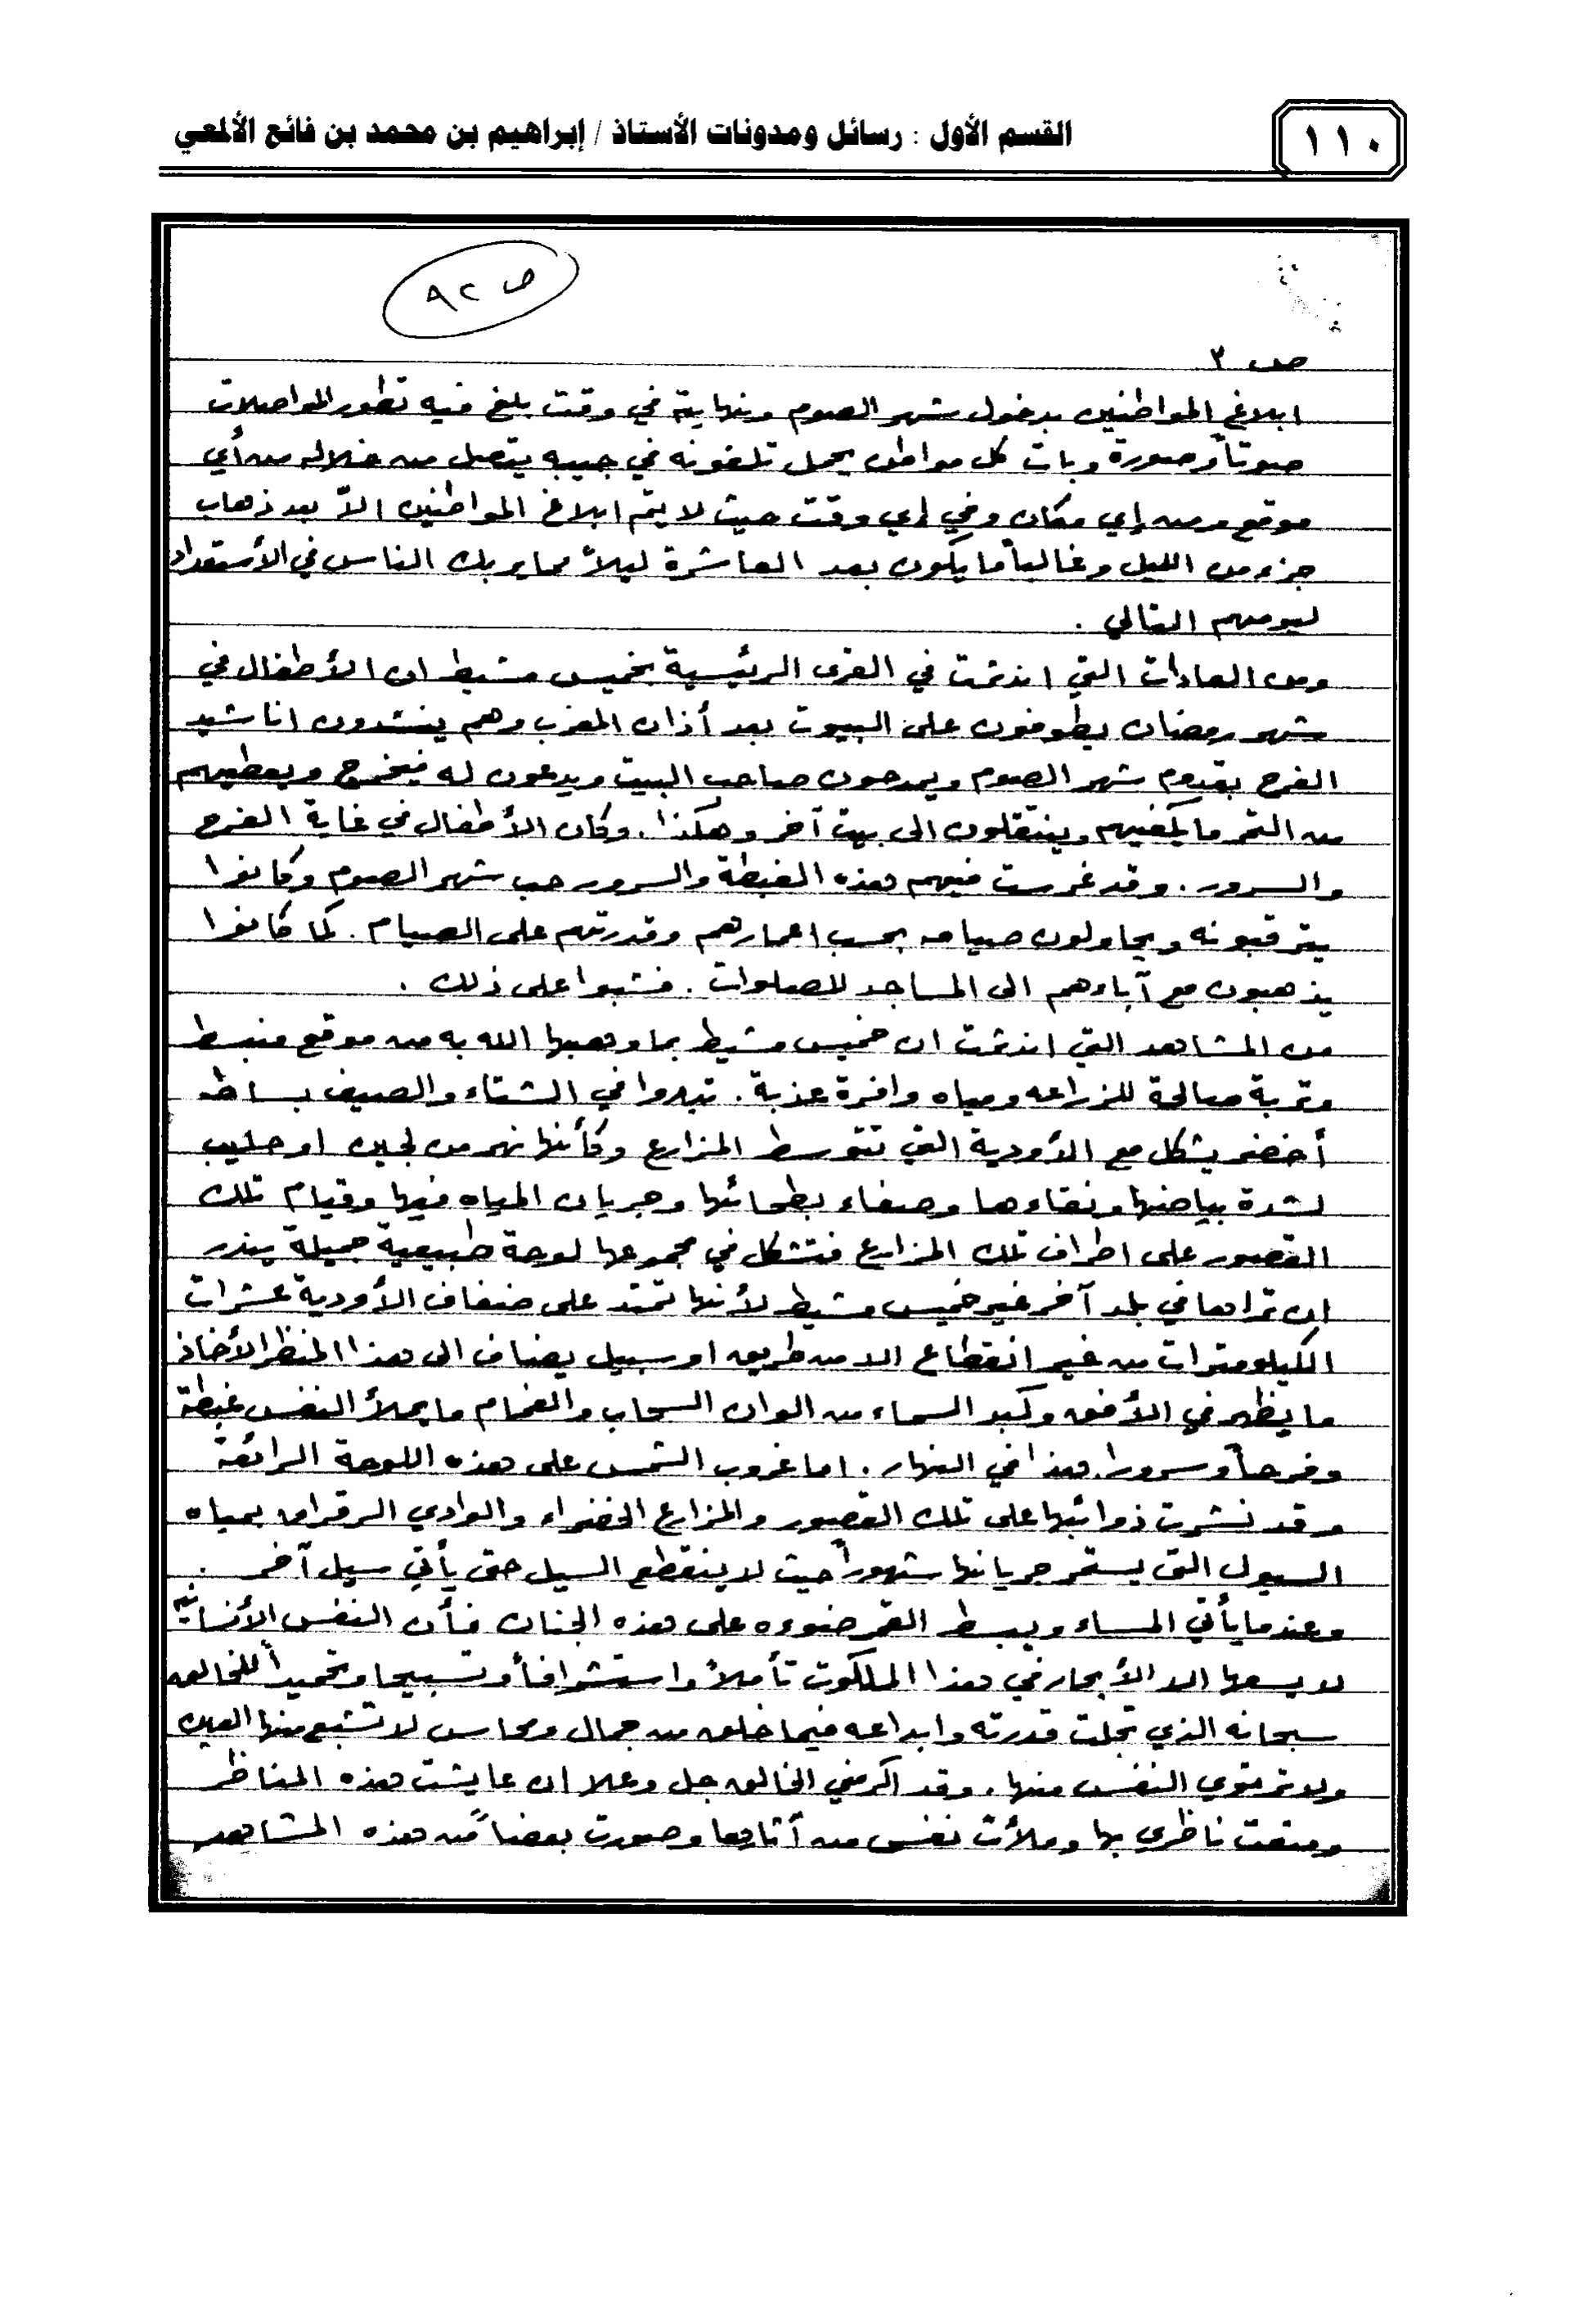 ١١٠
القسم الأول : رسائل ومدونات الأستاذ / إبراهيم بن محمد بن فائع الألمعي
ص ٩٢
ص ٣
ابلاغ المواطنين بدخول شهر الصوم ونهايته في وقت بلغ فيه تطور المواصلات
صوتاً وصورة وبات كل مواطن يحمل تلفونه في جيبه يتصل من خلاله من أي
موقع ومن إي مكان وفي إي وقت حيث لا يتم ابلاغ المواطنين الاّ بعد ذهاب
جزء من الليل وغالباً ما يكون بعد العاشرة ليلاً مما يربك الناس في الأستعداد
ليومهم التالي .
ومن العادات التي اندثرت في القرى الرئيسية بخميس مشيط ان الأطفال في
شهر رمضان يطوفون على البيوت بعد أذان المغرب وهم ينشدون اناشيد
الفرح بقدوم شهر الصوم ويمدحون صاحب البيت ويدعون له فيخرج ويعطيهم
من التمر ما يكفيهم وينتقلون الى بيت آخر وهكذا . وكان الأطفال في غاية الفرح
والسرور . وقد غرست فيهم هذه الغبطة والسرور حب شهر الصوم وكانوا
يترقبونه ويحاولون صيامه بحسب اعمارهم وقدرتهم على الصيام . كما كانوا
يذهبون مع آباءهم الى المساجد للصلوات . فشبوا على ذلك .
من المشاهد التي اندثرت ان خميس مشيط بما وهبها الله به من موقع منبسط
وتربة صالحة للزراعه ومياه وافرة عذبة . تبدوا في الشتاء والصيف بساط
أخضر يشكل مع الأودية التي تتوسط المزارع وكأنها نهر من لجين او حليب
لشدة بياضها ونقاءها وصفاء بطحائها وجريان المياه فيها وقيام تلك
القصور على اطراف تلك المزارع فتشكل في مجموعها لوحة طبيعية جميلة يندر
ان تراها في بلد آخر غير خميس مشيط لأنها تمتد على ضفاف الأودية عشرات
الكيلومترات من غير انقطاع الا من طريق او سبيل يضاف الى هذا المنظر الأخاذ
ما يظهر في الأفق وكبد السماء من الوان السحاب والغمام ما يملأ النفس غبطة
وفرحاً وسرورا. هذا في النهار . اما غروب الشمس على هذه اللوحة الرائعة
وقد نشرت ذوائبها على تلك القصور والمزارع الخضراء والوادي الرقراق بمياه
السيول التي يستمر جريانها شهوراً حيث لا ينقطع السيل حتى يأتي سيل آخر .
وعندما يأتي المساء ويبسط القمر ضوءه على هذه الجنان فأن النفس الأنسانيه
لا يسعها الا الأبحار في هذا الملكوت تأملاً واستشرافاً وتسبيحا وتحميداً للخالق
سبحانه الذي تجلت قدرته وابداعه فيما خلق من جمال ومحاسن لا تشبع منها العين
ولا ترتوي النفس منها . وقد اكرمني الخالق جل وعلا ان عايشت هذه المناظر
ومتعت ناظري بها وملأت نفسي من وصورت بعضاً من هذه المشاهد